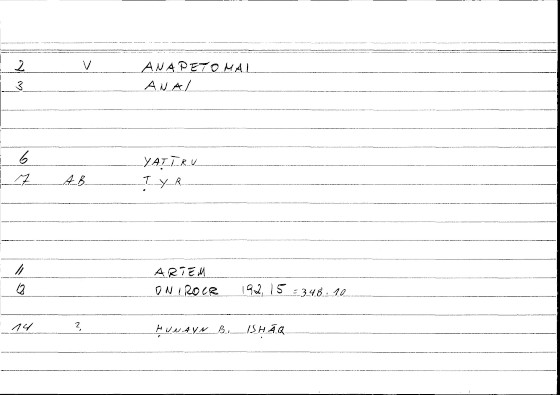 2 V ANAPETOMAI
3 ANAI
6 YAṬĪRU
17 AB ṬYR
11 ARTEM
12 ONIROCR 192,15 = 348.10
14 ? ḤUNAYN B. ISḤĀQ